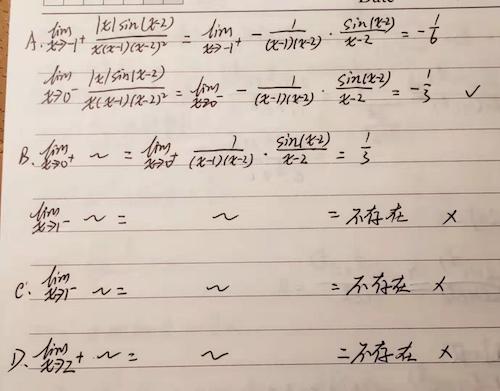 A. lim_{x→-1^+} \frac{|x|sin(x-2)}{x(x-1)(x-2)^2} = lim_{x→-1^+} -\frac{1}{(x-1)(x-2)} · \frac{sin(x-2)}{x-2} = -\frac{1}{6}
lim_{x→0^-} \frac{|x|sin(x-2)}{x(x-1)(x-2)^2} = lim_{x→0^-} -\frac{1}{(x-1)(x-2)} · \frac{sin(x-2)}{x-2} = -\frac{1}{3} ✓
B. lim_{x→0^+} ~ = lim_{x→0^+} \frac{1}{(x-1)(x-2)} · \frac{sin(x-2)}{x-2} = \frac{1}{3}
lim_{x→1^-} ~ = ~ = 不存在 ×
C. lim_{x→1^-} ~ = ~ = 不存在 ×
D. lim_{x→2^+} ~ = ~ = 不存在 ×